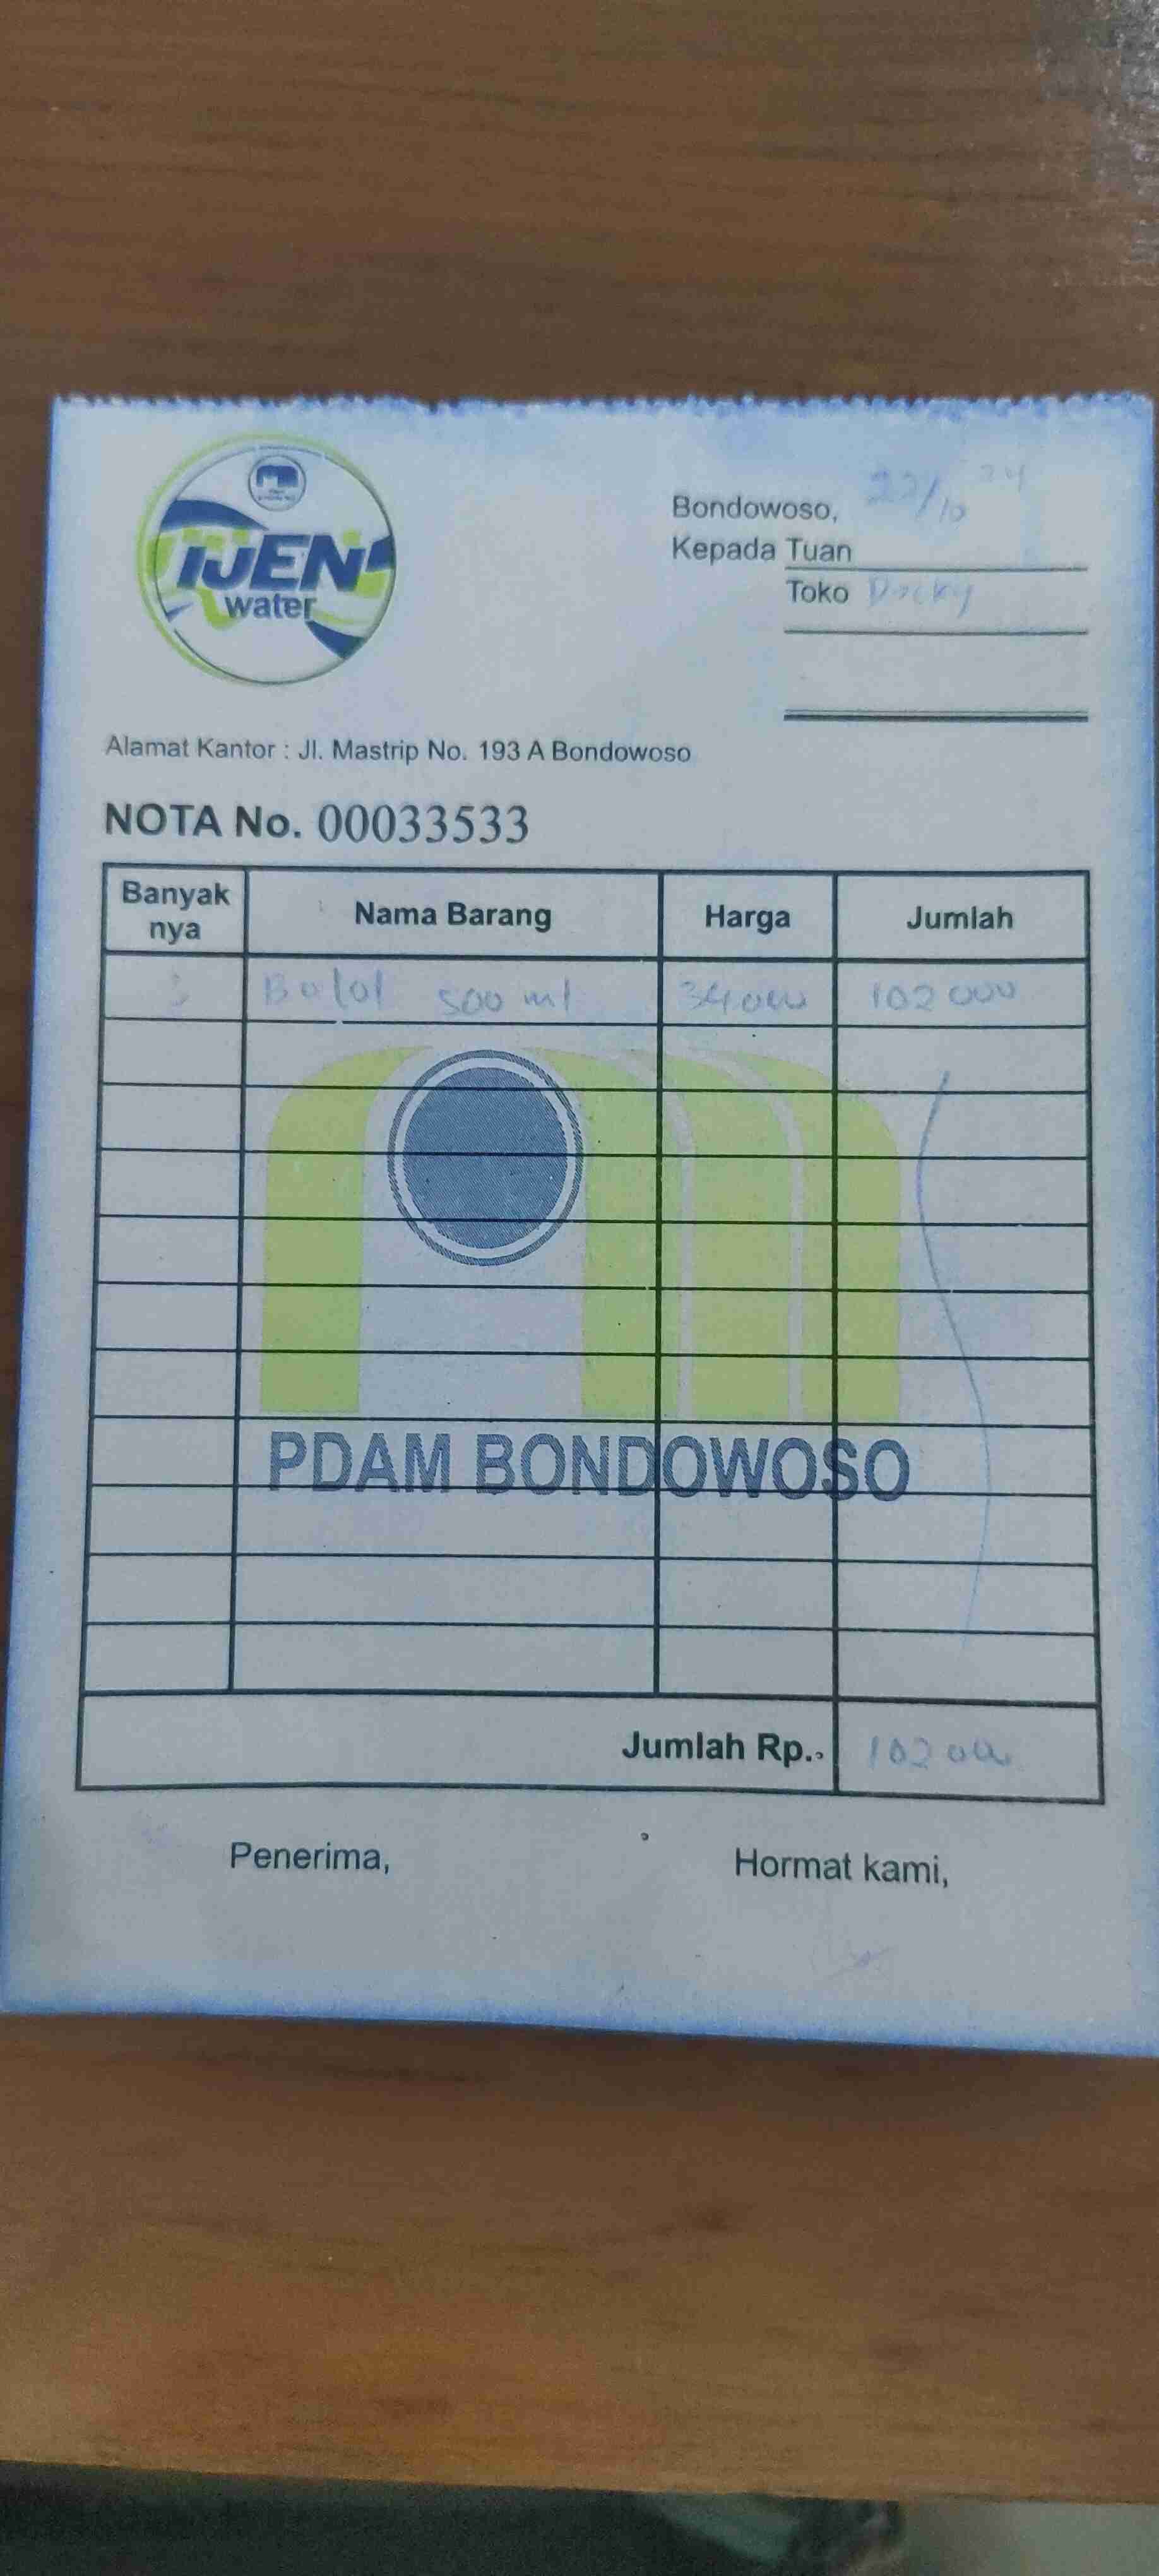 IJEN
water
Bondowoso, 22/10 24
Kepada Tuan
Toko
Alamat Kantor : Jl. Mastrip No. 193 A Bondowoso
NOTA No. 00033533
Banyak nya Nama Barang Harga Jumlah
3 Botol 500 ml 34000 102000
PDAM BONDOWOSO
Jumlah Rp. 102000
Penerima, Hormat kami,